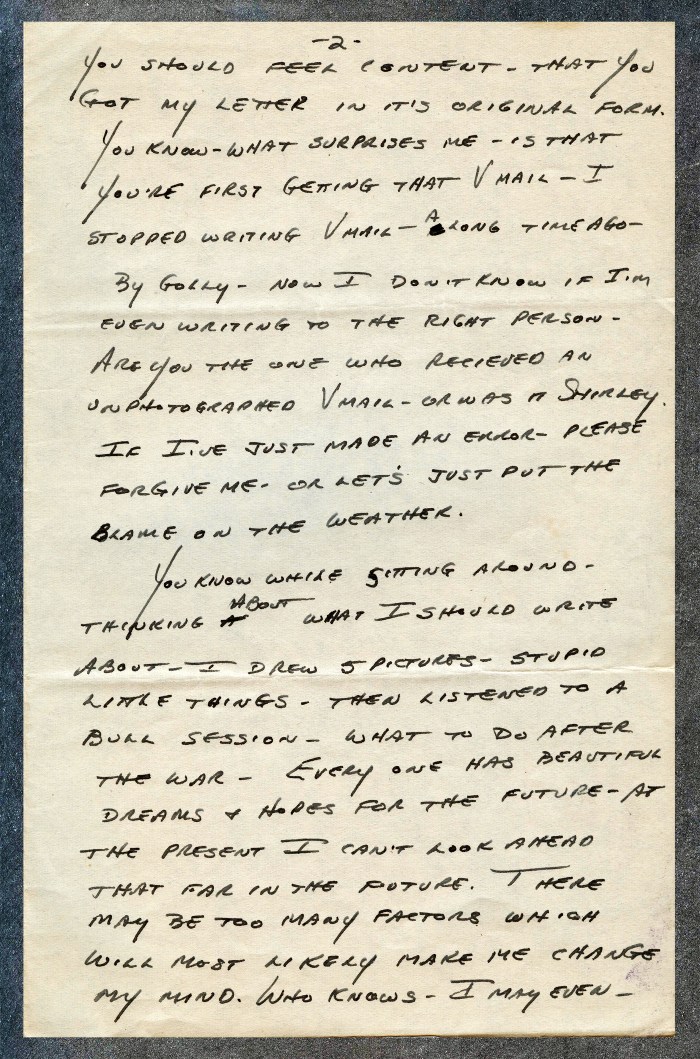 -2-
YOU SHOULD FEEL CONTENT - THAT YOU
GOT MY LETTER IN IT'S ORIGINAL FORM.
YOU KNOW - WHAT SURPRISES ME - IS THAT
YOU'RE FIRST GETTING THAT V MAIL - I
STOPPED WRITING V MAIL - A LONG TIME AGO -
BY GOLLY - NOW I DON'T KNOW IF I'M
EVEN WRITING TO THE RIGHT PERSON -
ARE YOU THE ONE WHO RECIEVED AN
UNPHOTOGRAPHED V MAIL - OR WAS IT SHIRLEY.
IF I'VE JUST MADE AN ERROR - PLEASE
FORGIVE ME - OR LET'S JUST PUT THE
BLAME ON THE WEATHER.
YOU KNOW WHILE SITTING AROUND -
THINKING ABOUT WHAT I SHOULD WRITE
ABOUT - I DREW 5 PICTURES - STUPID
LITTLE THINGS - THEN LISTENED TO A
BULL SESSION - WHAT TO DO AFTER
THE WAR - EVERY ONE HAS BEAUTIFUL
DREAMS & HOPES FOR THE FUTURE - AT
THE PRESENT I CAN'T LOOK AHEAD
THAT FAR IN THE FUTURE. THERE
MAY BE TOO MANY FACTORS WHICH
WILL MOST LIKELY MAKE ME CHANGE
MY MIND. WHO KNOWS - I MAY EVEN -